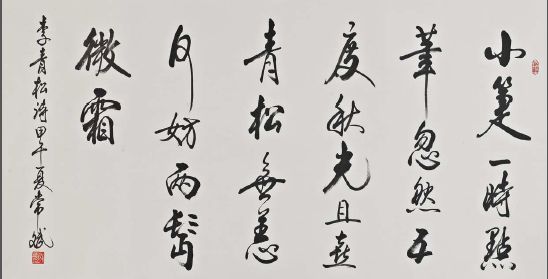 小箑一時點
筆忽然五
度秋光且喜
青松無恙
何妨兩鬢
微霜
李青松詩甲午夏常斌